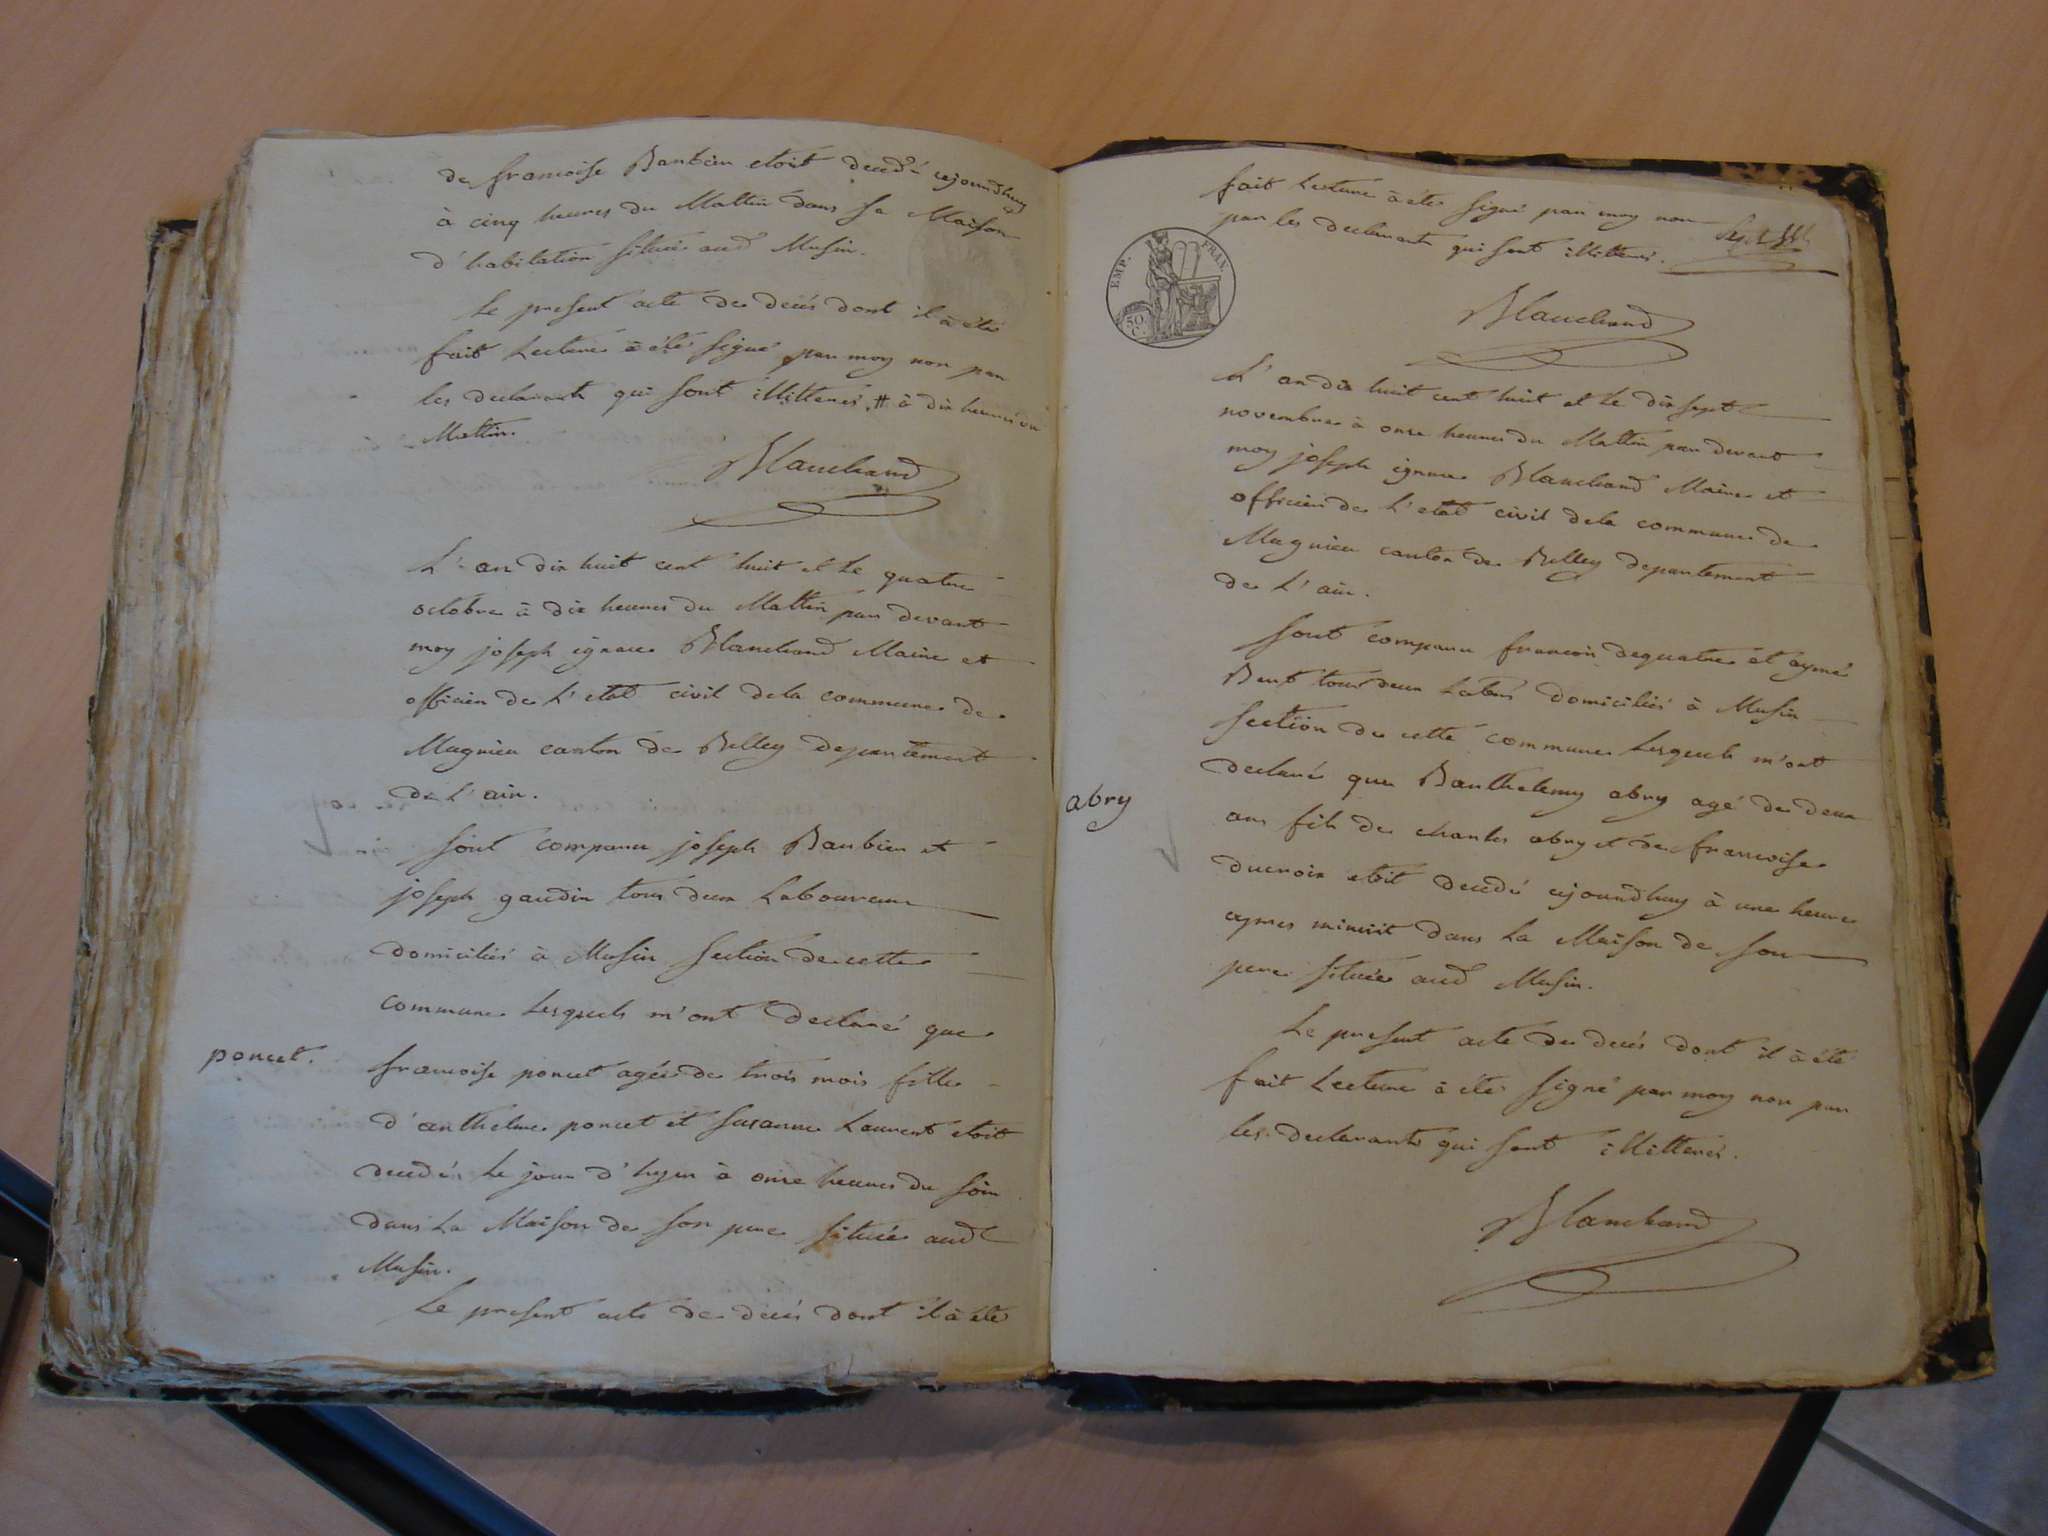 de francoise Barbier etoit decedé cejourdhuy
à cinq heures du Mattin dans sa Maison
d'habitation située aud Musin.
Le present acte de decés dont il à été
fait Lecture à été signé par moy non par
les declarants qui sont illitterés, # à dix heures du
Mattin.
Blanchard
L'an dix huit cent huit et le quatre
octobre à dix heures du Mattin par devant
moy joseph ignace Blanchard Maire et
officier de L'etat civil de la commune de
Magnieu canton de Belley departement
de L'ain.
Sont comparu joseph Barbier et
joseph gaudin tous deux Laboureurs
domiciliés à Musin section de cette
commune Lesquels m'ont declaré que
poncet.
francoise poncet agée de trois mois fille
d'anthelme poncet et susanne Laurent etoit
decedée Le jour d'hyer à onze heures du soir
dans La Maison de son pere située aud
Musin.
Le present acte de decés dont il à été
fait Lecture à été signé par moy non
par les declarants qui sont illitterés.
EMP. FRAN.
50 C.
Blanchard
L'an dix huit cent huit et le dix sept
novembre à onze heures du Mattin par devant
moy joseph ignace Blanchard Maire et
officier de L'etat civil de la commune de
Magnieu canton de Belley departement
de L'ain.
Sont comparu francois dequatre et aymé
Bert tous deux Labrs domiciliés à Musin
section de cette commune Lesquels m'ont
declarés que Barthelemy abry agé de deux
abry
ans fils de charles abry et de francoise
ducroix etoit decedé cejourdhuy à une heure
apres minuit dans La Maison de son
pere située aud Musin.
Le present acte de decés dont il à été
fait Lecture à été signé par moy non par
les declarants qui sont illitterés.
Blanchard